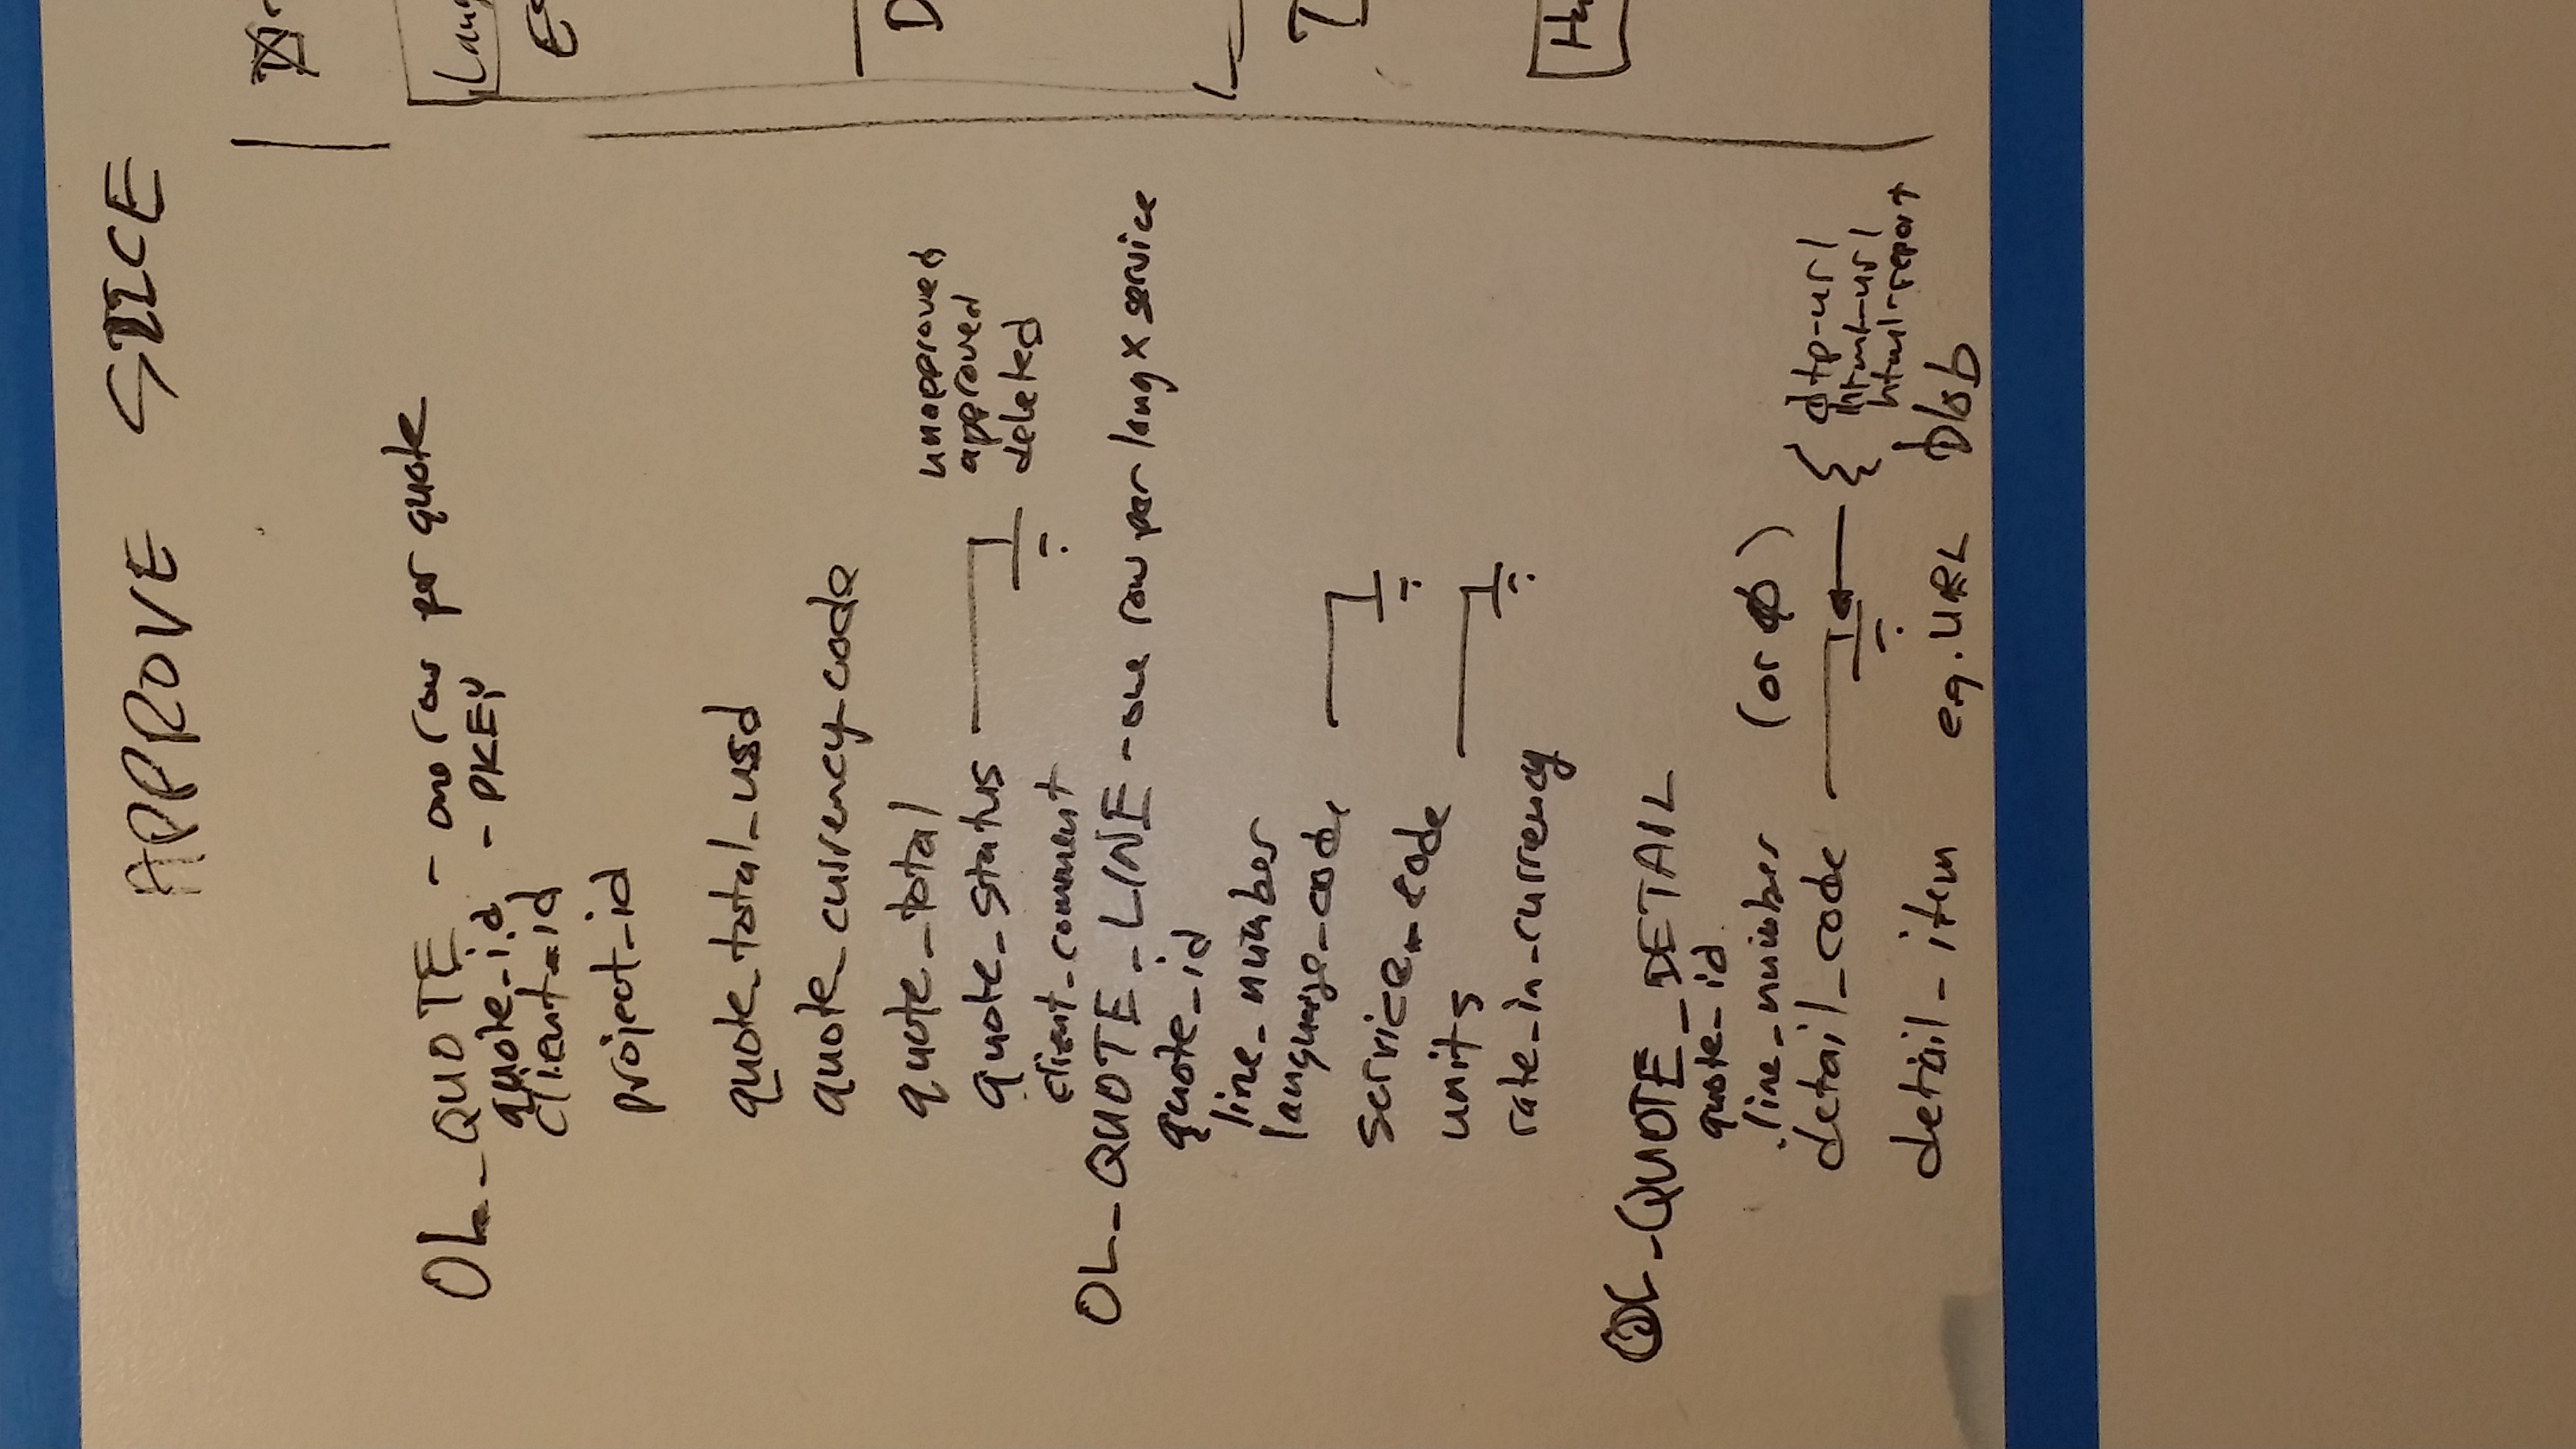 APPROVE
OL_QUOTE - one row per quote
quote_id - PKEY
client_id
project_id
quote_total_usd
quote_currency_code
quote_total
quote_status
unapproved
approved
deleted
client_comment
OL_QUOTE_LINE - one row per lang x service
quote_id
line_number
language_code
service_code
units
rate_in_currency
OL_QUOTE_DETAIL
quote_id
line_number (or φ)
detail_code
{ dtp-url
html-url
html-report
detail_item e.g. URL blob